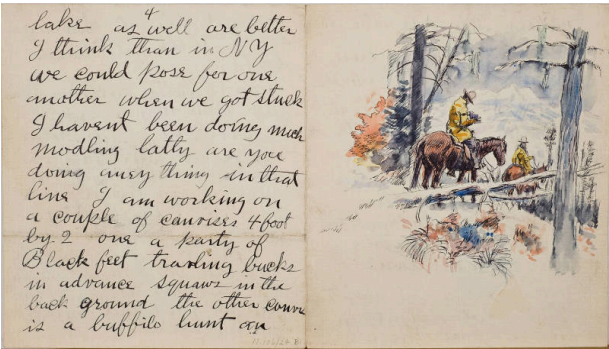 4
lake as well are better
I think than in NY
we could pose for one
another when we got stuck
I havent been doing much
modling latly are you
doing aney thing in that
line I am working on
a couple of canvises 4 foot
by 2 one a party of
Black feet traviling bucks
in advance squaws in the
back ground the other canvis
is a buffilo hunt an